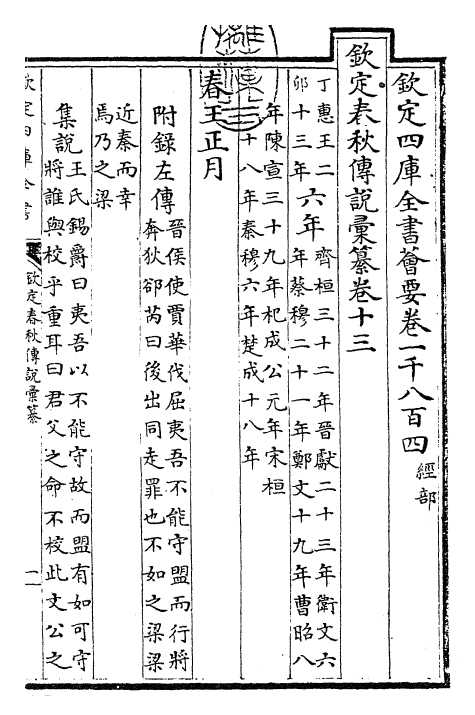 欽定四庫全書薈要卷一千八百四 經部
欽定春秋傳說彙纂卷十三
丁惠王二
卯十三年
六年
齊桓三十二年晉獻二十三年衛文六
年蔡穆二十一年鄭文十九年曹昭八
年陳宣三十九年杞成公元年宋桓
二十八年秦穆六年楚成十八年
春王正月
附錄左傳
晉侯使賈華伐屈夷吾不能守盟而行將
奔狄郤芮曰後出同走罪也不如之梁梁
近秦而幸
焉乃之梁
集說
王氏錫爵曰夷吾以不能守故而盟有如可守
將誰與校乎重耳曰君父之命不校此文公之
欽定四庫全書
欽定春秋傳說彙纂
一